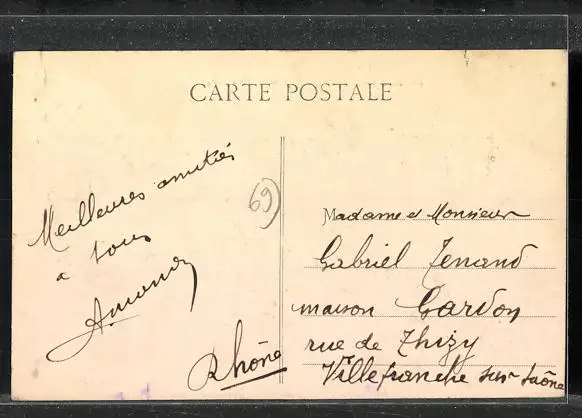 CARTE POSTALE
Meilleures amitiés
a tous
69
Madame et Monsieur
Gabriel
maison Gardon
rue de Thizy
Villefranche sur Saône
Rhône